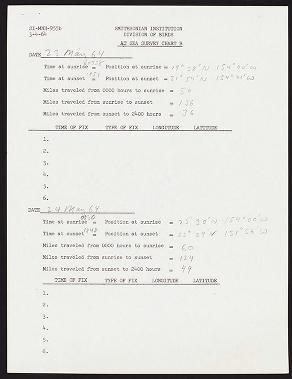 SI-MNH-955b
3-4-64
SMITHSONIAN INSTITUTION
DIVISION OF BIRDS
AT SEA SURVEY CHART B
DATE 23 May 64
Time at sunrise = Position at sunrise = 154°00'W
Time at sunset = Position at sunset = 21°54'N 154°00'W
Miles traveled from 0000 hours to sunrise = 50
Miles traveled from sunrise to sunset = 136
Miles traveled from sunset to 2400 hours = 36
TIME OF FIX TYPE OF FIX LONGITUDE LATITUDE
1.
2.
3.
4.
5.
6.
DATE 24 May 64
Time at sunrise = Position at sunrise = 154°00'W
Time at sunset = Position at sunset =
Miles traveled from 0000 hours to sunrise = 60
Miles traveled from sunrise to sunset = 124
Miles traveled from sunset to 2400 hours = 49
TIME OF FIX TYPE OF FIX LONGITUDE LATITUDE
1.
2.
3.
4.
5.
6.